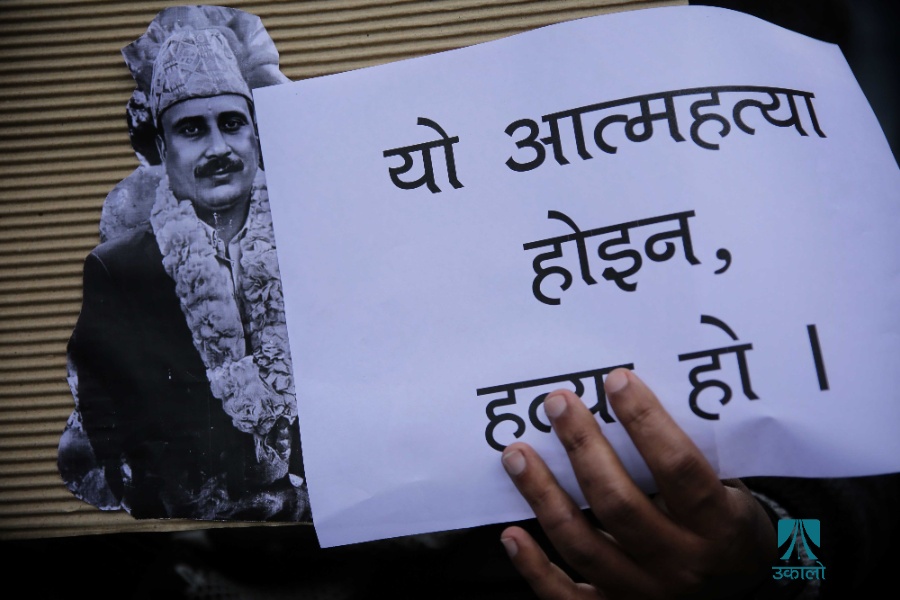 यो आत्महत्या
होइन,
हत्या हो ।
उकालो